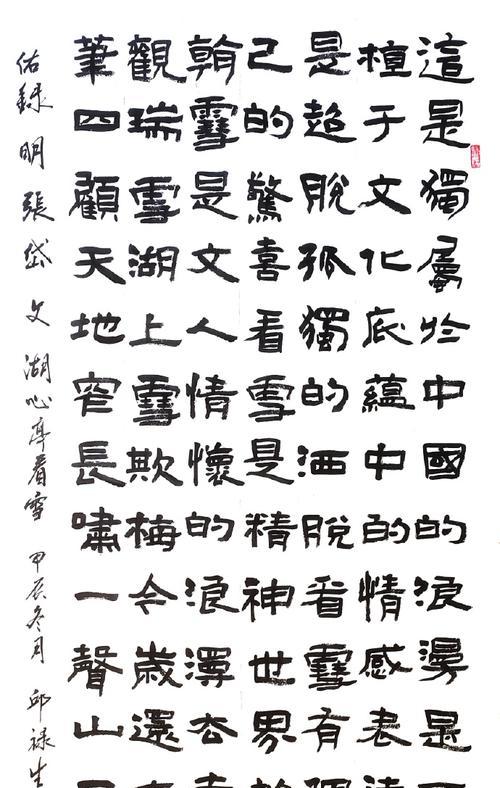 這是獨屬於中國的浪漫是
植于文化底蘊中的情感表
是超脫孤獨的洒脫看雪有
己的驚喜看雪是精神世界
翰雪是文人情懷的浪
觀瑞雪湖上雪欺梅今歲還
筆四顧天地窄長嘯一聲山
佑錄明張岱文湖心亭看雪 甲辰冬月 邱祿生